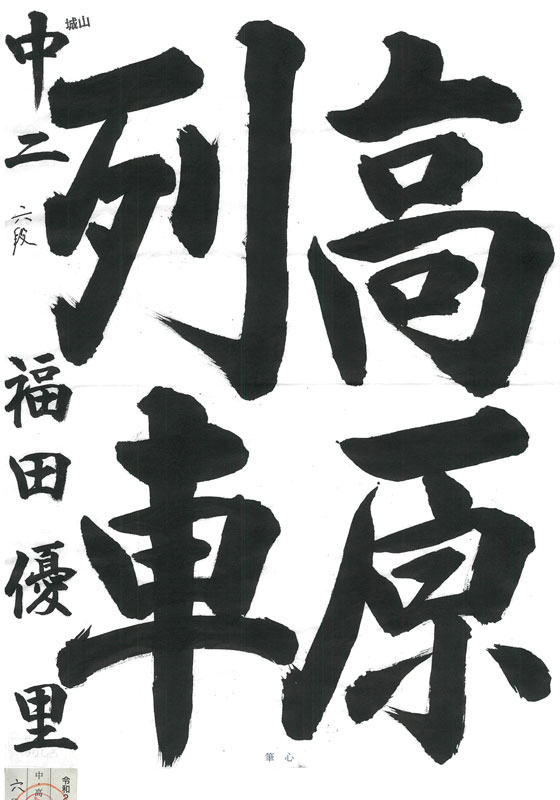 高原
列車
城山
中二 六段 福田優里
筆心
令和2
中・高
六